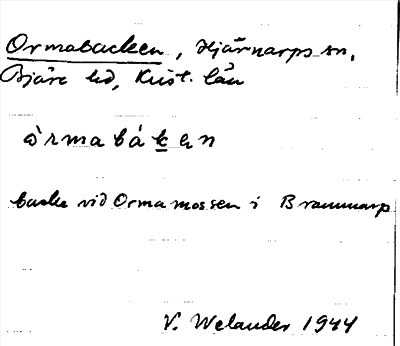 Ormabacken, Hjärnarps sn,
Bjäre hd, Krist. län
òrmabákan
backe vid Ormamossen i Brammarp
V. Welander 1944